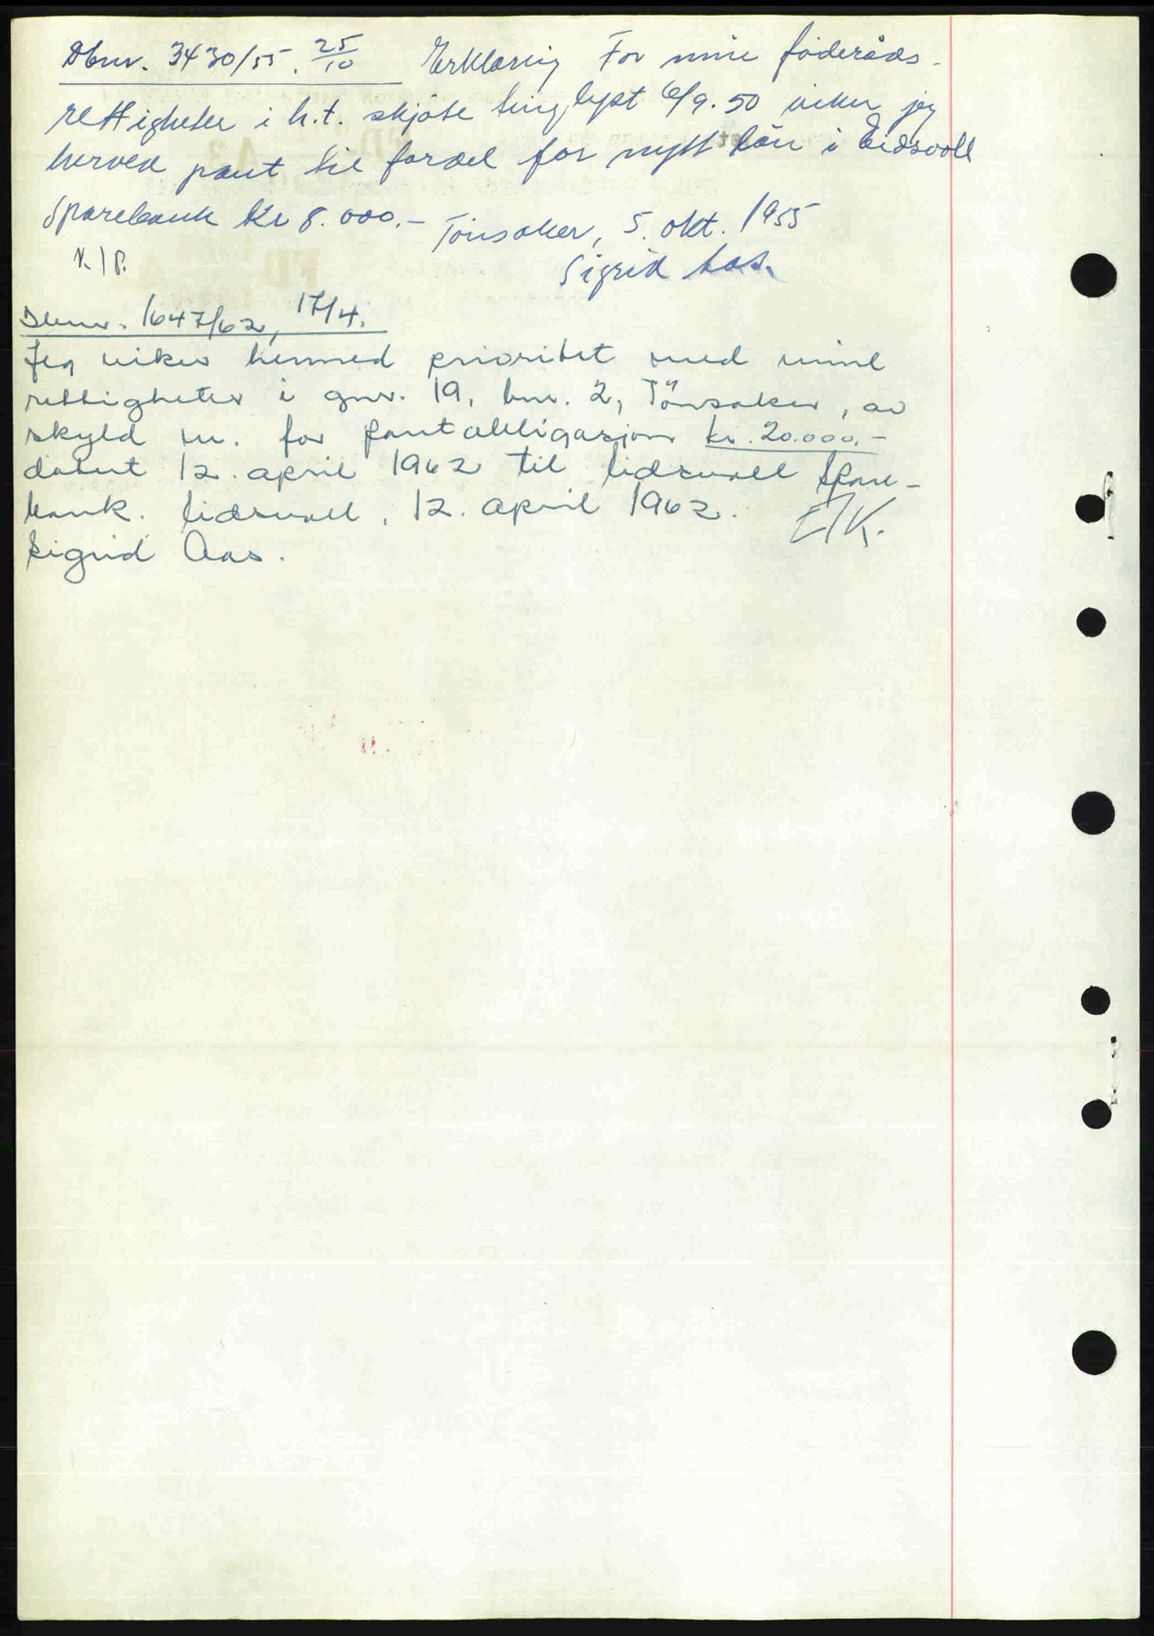 Dbnr. 3430/55. 25/10 Erklæring For mine föderåds-
rettigheter i h.t. skjöte tinglyst 6/9.50 viker jeg
herved pant til fordel for nytt lån i Eidsvoll
Sparebank Kr 8.000.- Tönsaker, 5. okt. 1955
Sigrid Aas.
Dbnr. 1647/62, 17/4.
Jeg viker hermed prioritet med mine
rettigheter i gnr. 19, bnr. 2, Tönsaker, av
skyld m. for pantobligasjon kr. 20.000.-
datert 12. april 1962 til Eidsvoll Spare-
bank. Eidsvoll, 12. april 1962. E/K.
Sigrid Aas.